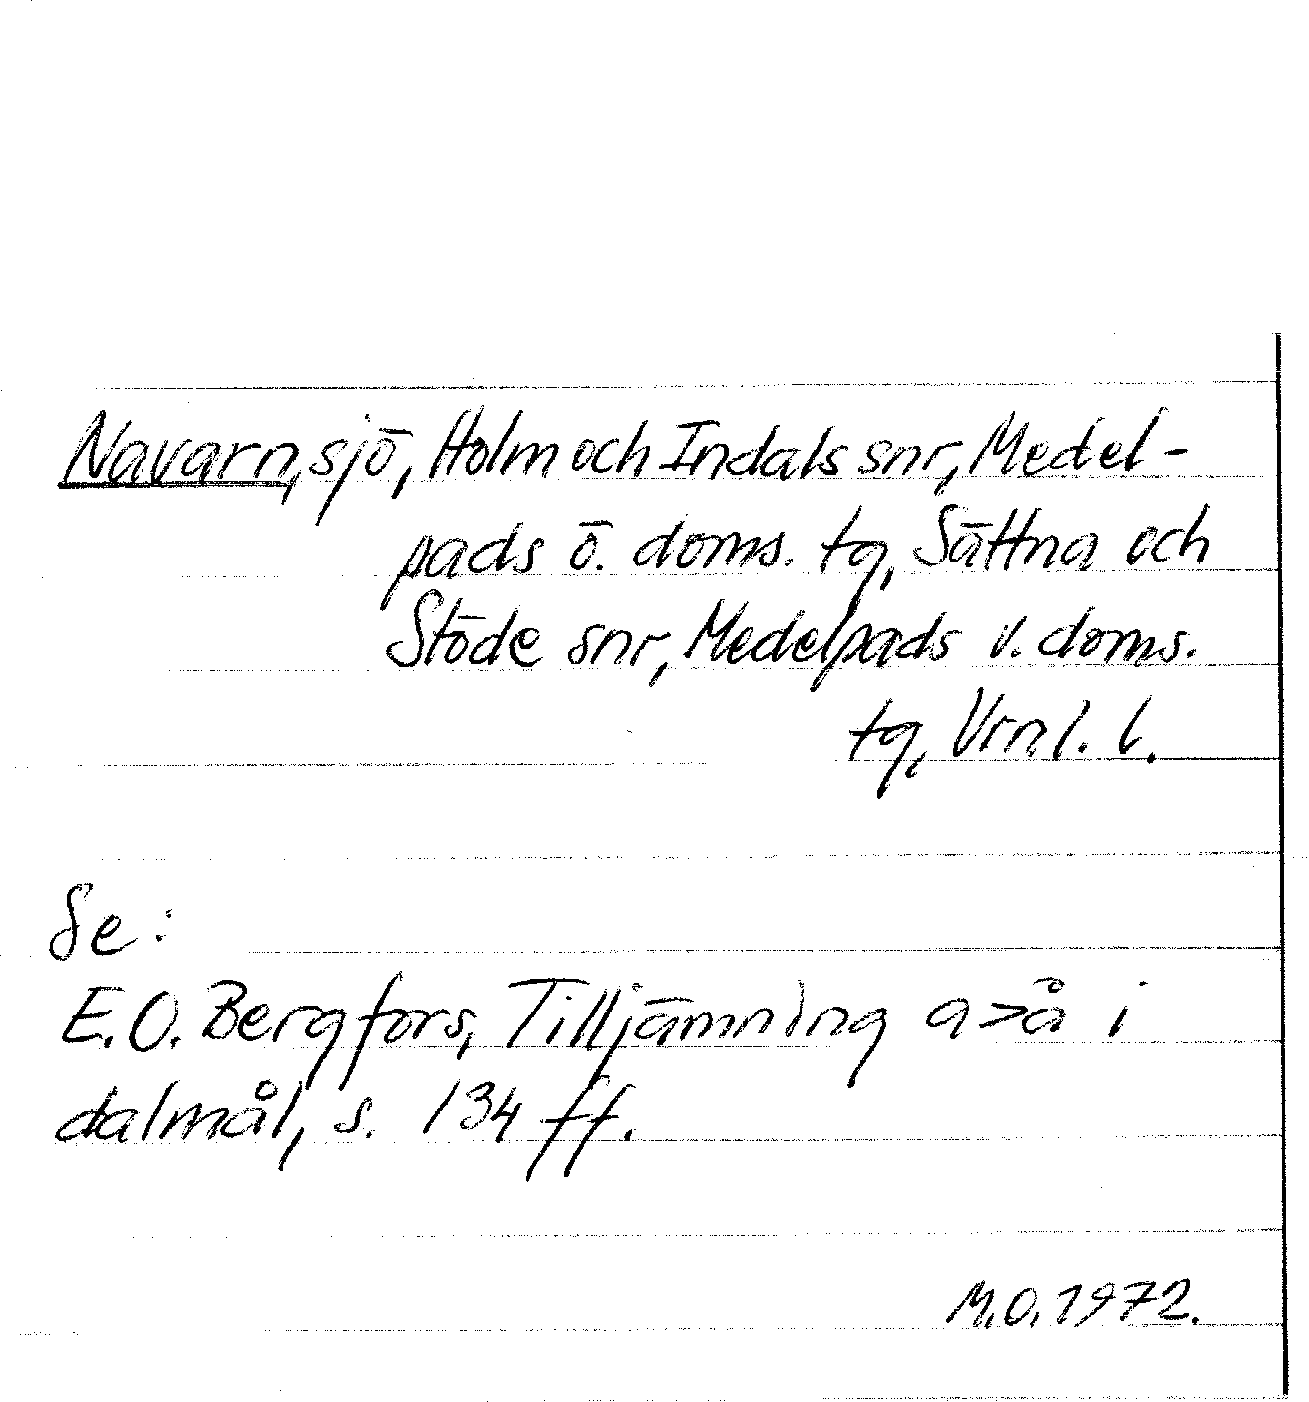 Navarn, sjö, Holm och Indals snr, Medel-
pads ö. doms. tg, Sättna och
Stöde snr, Medelpads v. doms.
tg, Vrnl. l.
Se:
E.O. Bergfors, Tilljämning a>å i
dalmål, s. 134 ff.
M.O. 1972.